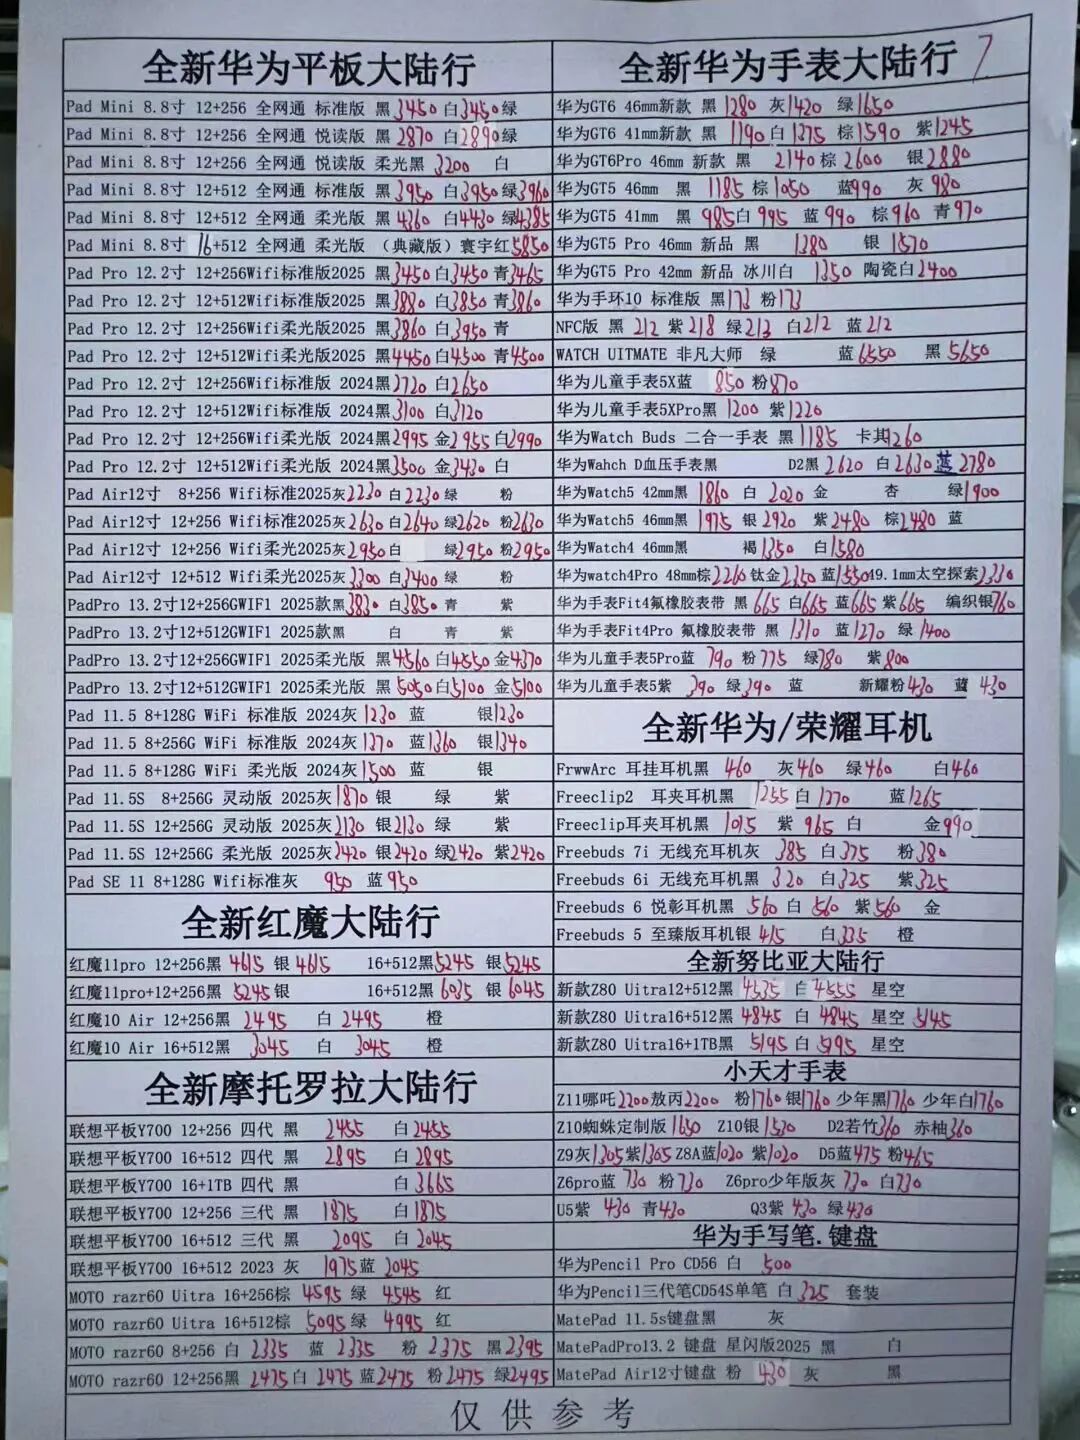 全新华为平板大陆行
Pad Mini 8.8寸 12+256 全网通 标准版 黑3450 白3450绿
Pad Mini 8.8寸 12+256 全网通 悦读版 黑2870 白2890绿
Pad Mini 8.8寸 12+256 全网通 悦读版 柔光黑 3200 白
Pad Mini 8.8寸 12+512 全网通 标准版 黑3950 白3950绿3960
Pad Mini 8.8寸 12+512 全网通 柔光版 黑4360 白4430 绿4385
Pad Mini 8.8寸 16+512 全网通 柔光版 （典藏版）寰宇红5850
Pad Pro 12.2寸 12+256Wifi标准版2025 黑3450白3450 青3465
Pad Pro 12.2寸 12+512Wifi标准版2025 黑3880 白3850 青3860
Pad Pro 12.2寸 12+256Wifi柔光版2025 黑3860 白3950 青
Pad Pro 12.2寸 12+512Wifi柔光版2025 黑4450白4500 青4500
Pad Pro 12.2寸 12+256Wifi标准版 2024黑2720 白2650
Pad Pro 12.2寸 12+512Wifi标准版 2024黑3100 白3120
Pad Pro 12.2寸 12+256Wifi柔光版 2024黑2995 金2955 白2990
Pad Pro 12.2寸 12+512Wifi柔光版 2024黑3500 金3430 白
Pad Air12寸 8+256 Wifi标准2025灰2230 白2230绿 粉
Pad Air12寸 12+256 Wifi标准2025灰2630 白2640 绿2620 粉2630
Pad Air12寸 12+256 Wifi柔光2025灰2950白 绿2950 粉2950
Pad Air12寸 12+512 Wifi柔光2025灰3300 白3400 绿 粉
PadPro 13.2寸12+256GWIF1 2025款黑3830 白3850 青 紫
PadPro 13.2寸12+512GWIF1 2025款黑 白 青 紫
PadPro 13.2寸12+256GWIF1 2025柔光版 黑4560 白4550 金4370
PadPro 13.2寸12+512GWIF1 2025柔光版 黑5050白5100 金5100
Pad 11.5 8+128G WiFi 标准版 2024灰 1230 蓝 银1230
Pad 11.5 8+256G WiFi 标准版 2024灰1370 蓝1360 银1340
Pad 11.5 8+128G WiFi 柔光版 2024灰1500 蓝 银
Pad 11.5S 8+256G 灵动版 2025灰1870 银 绿 紫
Pad 11.5S 12+256G 灵动版 2025灰2130 银2130 绿 紫
Pad 11.5S 12+256G 柔光版 2025灰2420 银2420 绿2420 紫2420
Pad SE 11 8+128G Wifi标准灰 950 蓝950
全新红魔大陆行
红魔11pro 12+256黑 4615 银 4615 16+512黑5245 银5245
红魔11pro+12+256黑 5245银 16+512黑 6035 银 6045
红魔10 Air 12+256黑 2495 白 2495 橙
红魔10 Air 16+512黑 3045 白 3045 橙
全新摩托罗拉大陆行
联想平板Y700 12+256 四代 黑 2455 白2455
联想平板Y700 16+512 四代 黑 2895 白2895
联想平板Y700 16+1TB 四代 黑 白3665
联想平板Y700 12+256 三代 黑 1875 白1875
联想平板Y700 16+512 三代 黑 2095 白2045
联想平板Y700 16+512 2023 灰 1975蓝 2045
MOTO razr60 Uitra 16+256棕 4595 绿 4545 红
MOTO razr60 Uitra 16+512棕 5095绿 4995 红
MOTO razr60 8+256 白 2335 蓝 2335 粉 2375 黑2395
MOTO razr60 12+256黑 2475白 2475 蓝2475 粉2475 绿2495
全新华为手表大陆行 7
华为GT6 46mm新款 黑 1280 灰1420 绿1650
华为GT6 41mm新款 黑 1190白1375 棕1590 紫1245
华为GT6Pro 46mm 新款 黑 2140棕 2600 银2880
华为GT5 46mm 黑 1185 棕1050 蓝990 灰 980
华为GT5 41mm 黑 985白 995 蓝 990 棕 960 青 970
华为GT5 Pro 46mm 新品 黑 1380 银 1570
华为GT5 Pro 42mm 新品 冰川白 1350 陶瓷白2400
华为手环10 标准版 黑173 粉173
NFC版 黑 212 紫218 绿213 白212 蓝212
WATCH UITMATE 非凡大师 绿 蓝6550 黑5650
华为儿童手表5X蓝 850 粉870
华为儿童手表5XPro黑 1200 紫1220
华为Watch Buds 二合一手表 黑1185 卡其1260
华为Wahch D血压手表黑 D2黑 2620 白2630蓝2780
华为Watch5 42mm黑 1860 白 2020 金 杏 绿1900
华为Watch5 46mm黑 1975 银2920 紫2480 棕2480 蓝
华为Watch4 46mm黑 褐1350 白1580
华为watch4Pro 48mm棕2260 钛金2350 蓝155049.1mm太空探索2330
华为手表Fit4氟橡胶表带 黑 665 白665 蓝665 紫665 编织银760
华为手表Fit4Pro 氟橡胶表带 黑 1310 蓝1270 绿1400
华为儿童手表5Pro蓝 790 粉775 绿780 紫800
华为儿童手表5紫 390 绿390 蓝 新耀粉430 蓝 430
全新华为/荣耀耳机
FrwwArc 耳挂耳机黑 460 灰460 绿460 白460
Freeclip2 耳夹耳机黑 1255白 1270 蓝1265
Freeclip耳夹耳机黑 1015 紫 965 白 金990
Freebuds 7i 无线充耳机灰 385 白375 粉380
Freebuds 6i 无线充耳机黑 320 白325 紫325
Freebuds 6 悦彰耳机黑 560 白 560 紫560 金
Freebuds 5 至臻版耳机银 415 白335 橙
全新努比亚大陆行
新款Z80 Uitra12+512黑 4535 白4555 星空
新款Z80 Uitra16+512黑 4845 白 4845 星空 5145
新款Z80 Uitra16+1TB黑 5195 白 5195 星空
小天才手表
Z11哪吒2200敖丙2200 粉1760银1760 少年黑1760 少年白1760
Z10蜘蛛定制版1650 Z10银1530 D2若竹360 赤柚360
Z9灰1305紫1305 Z8A蓝1020 紫1020 D5蓝475 粉465
Z6pro蓝 730 粉730 Z6pro少年版灰 730 白730
U5紫 430 青430 Q3紫 430 绿430
华为手写笔.键盘
华为Pencil Pro CD56 白 500
华为Pencil三代笔CD54S单笔 白325 套装
MatePad 11.5s键盘黑 灰
MatePadPro13.2 键盘 星闪版2025 黑 白
MatePad Air12寸键盘 粉 430 灰 黑
仅供参考